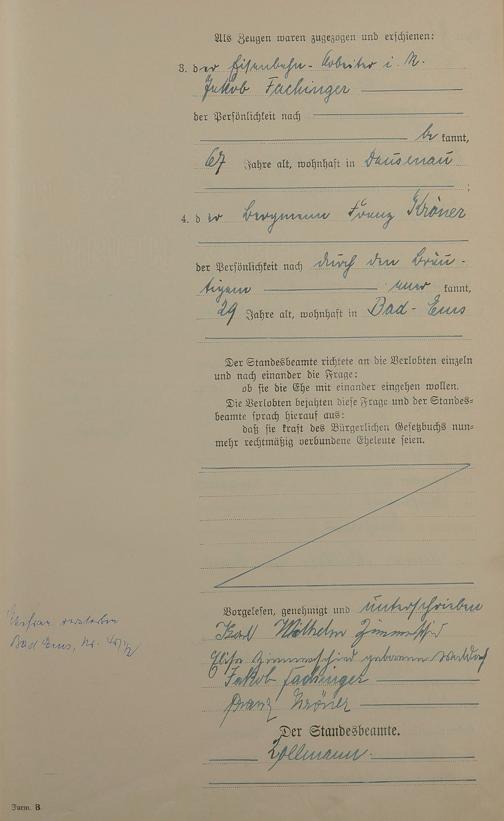 Als Zeugen waren zugezogen und erschienen:
3. der Eisenbahn-Arbeiter i. R.
Jakob Fachinger
der Persönlichkeit nach
be kannt,
67 Jahre alt, wohnhaft in Dausenau
;
4. der Bergmann Franz Kröner
der Persönlichkeit nach durch den Bräu-
tigam aner kannt,
29 Jahre alt, wohnhaft in Bad-Ems
Der Standesbeamte richtete an die Verlobten einzeln
und nach einander die Frage:
ob sie die Ehe mit einander eingehen wollen.
Die Verlobten bejahten diese Frage und der Standes=
beamte sprach hierauf aus:
daß sie kraft des Bürgerlichen Gesetzbuchs nun=
mehr rechtmäßig verbundene Eheleute seien.
Vorgelesen, genehmigt und unterschrieben
Karl Wilhelm
Elise geborene
Jakob Fachinger
Franz Kröner
Ehefrau verstorben
Bad Ems, Nr.
Der Standesbeamte.
Form. B.